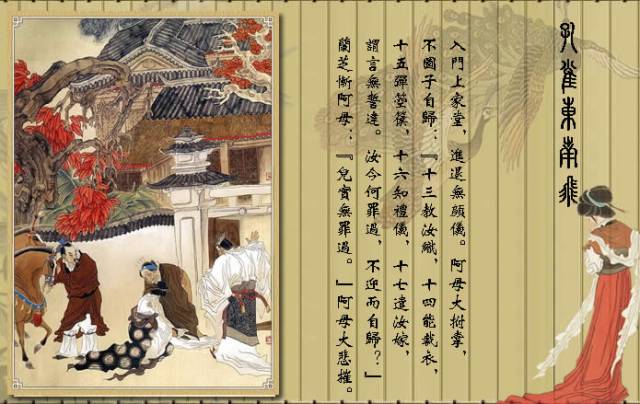 孔雀東南飛
入門上家堂，進退無顏儀。阿母大拊掌，
不圖子自歸：『十三教汝織，十四能裁衣，
十五彈箜篌，十六知禮儀，十七遣汝嫁，
謂言無誓違。汝今何罪過，不迎而自歸？」
蘭芝慚阿母：『兒實無罪過。」阿母大悲摧。